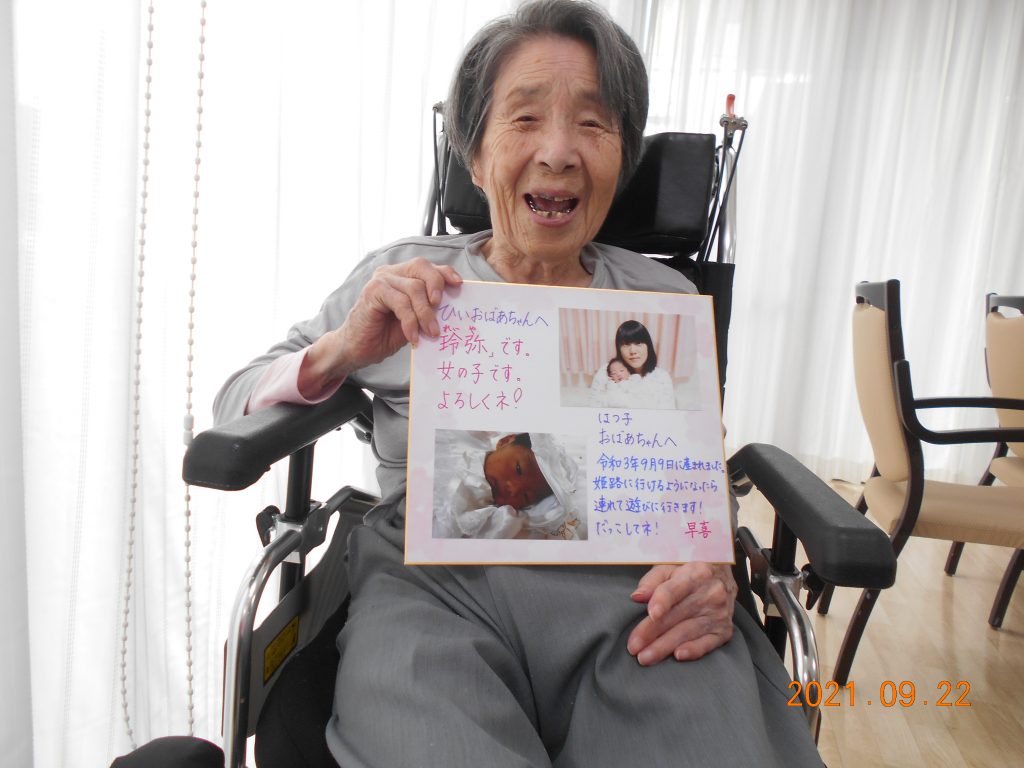 ひいおばあちゃんへ
れいや
「玲弥」です。
女の子です。
よろしくネ!
はつ子
おばあちゃんへ
令和3年9月9日に産まれました。
姫路に行けるようになったら
連れて遊びに行きます!
だっこしてネ! 早喜
2021.09.22